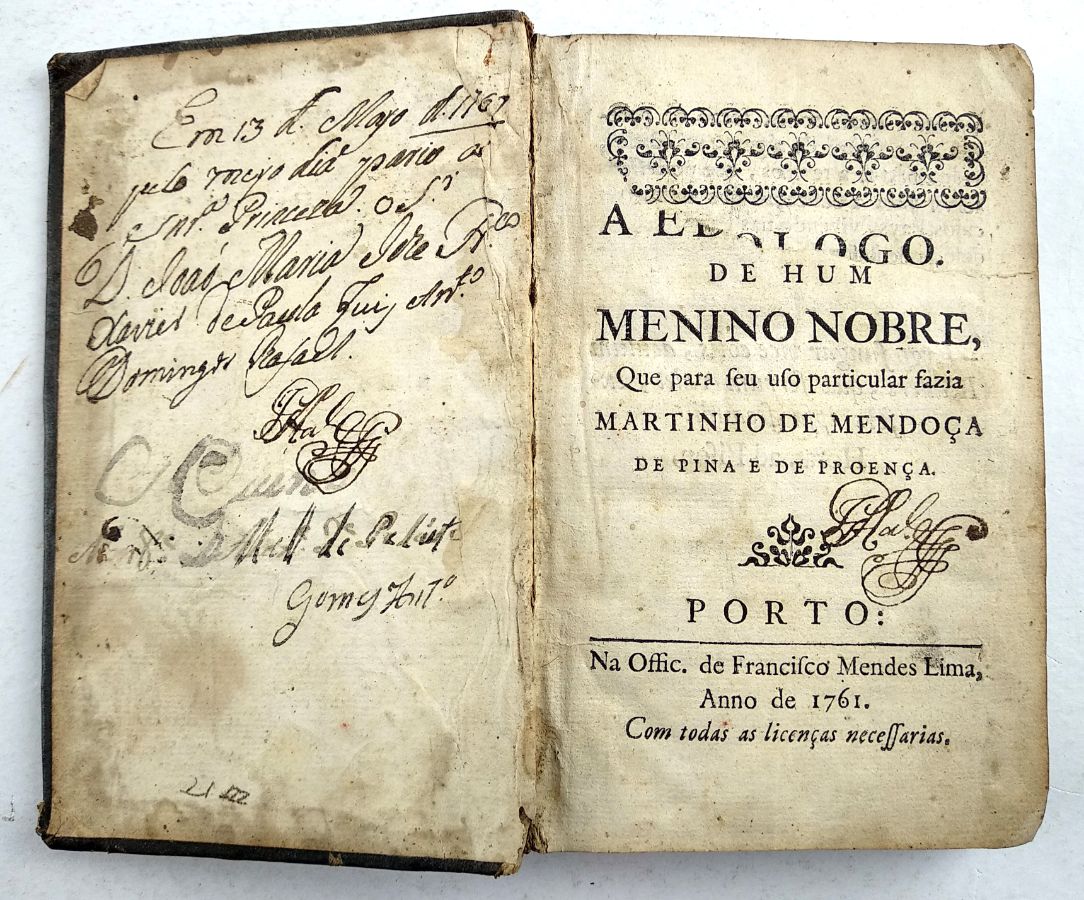 Em 13 d. Mayo d. 1767
pelo meyo dia pario a
Snr.ª Princeza. O S.r
D. Joaõ Maria Joze Fr.co
Xavier de Paula Luis Ant.o
Domingos Rafael.
Gomes Ant.o
A ED OLOGO.
DE HUM
MENINO NOBRE,
Que para ſeu uſo particular fazia
MARTINHO DE MENDOÇA
DE PINA E DE PROENÇA.
PORTO:
Na Offic. de Franciſco Mendes Lima,
Anno de 1761.
Com todas as licenças neceſſarias.